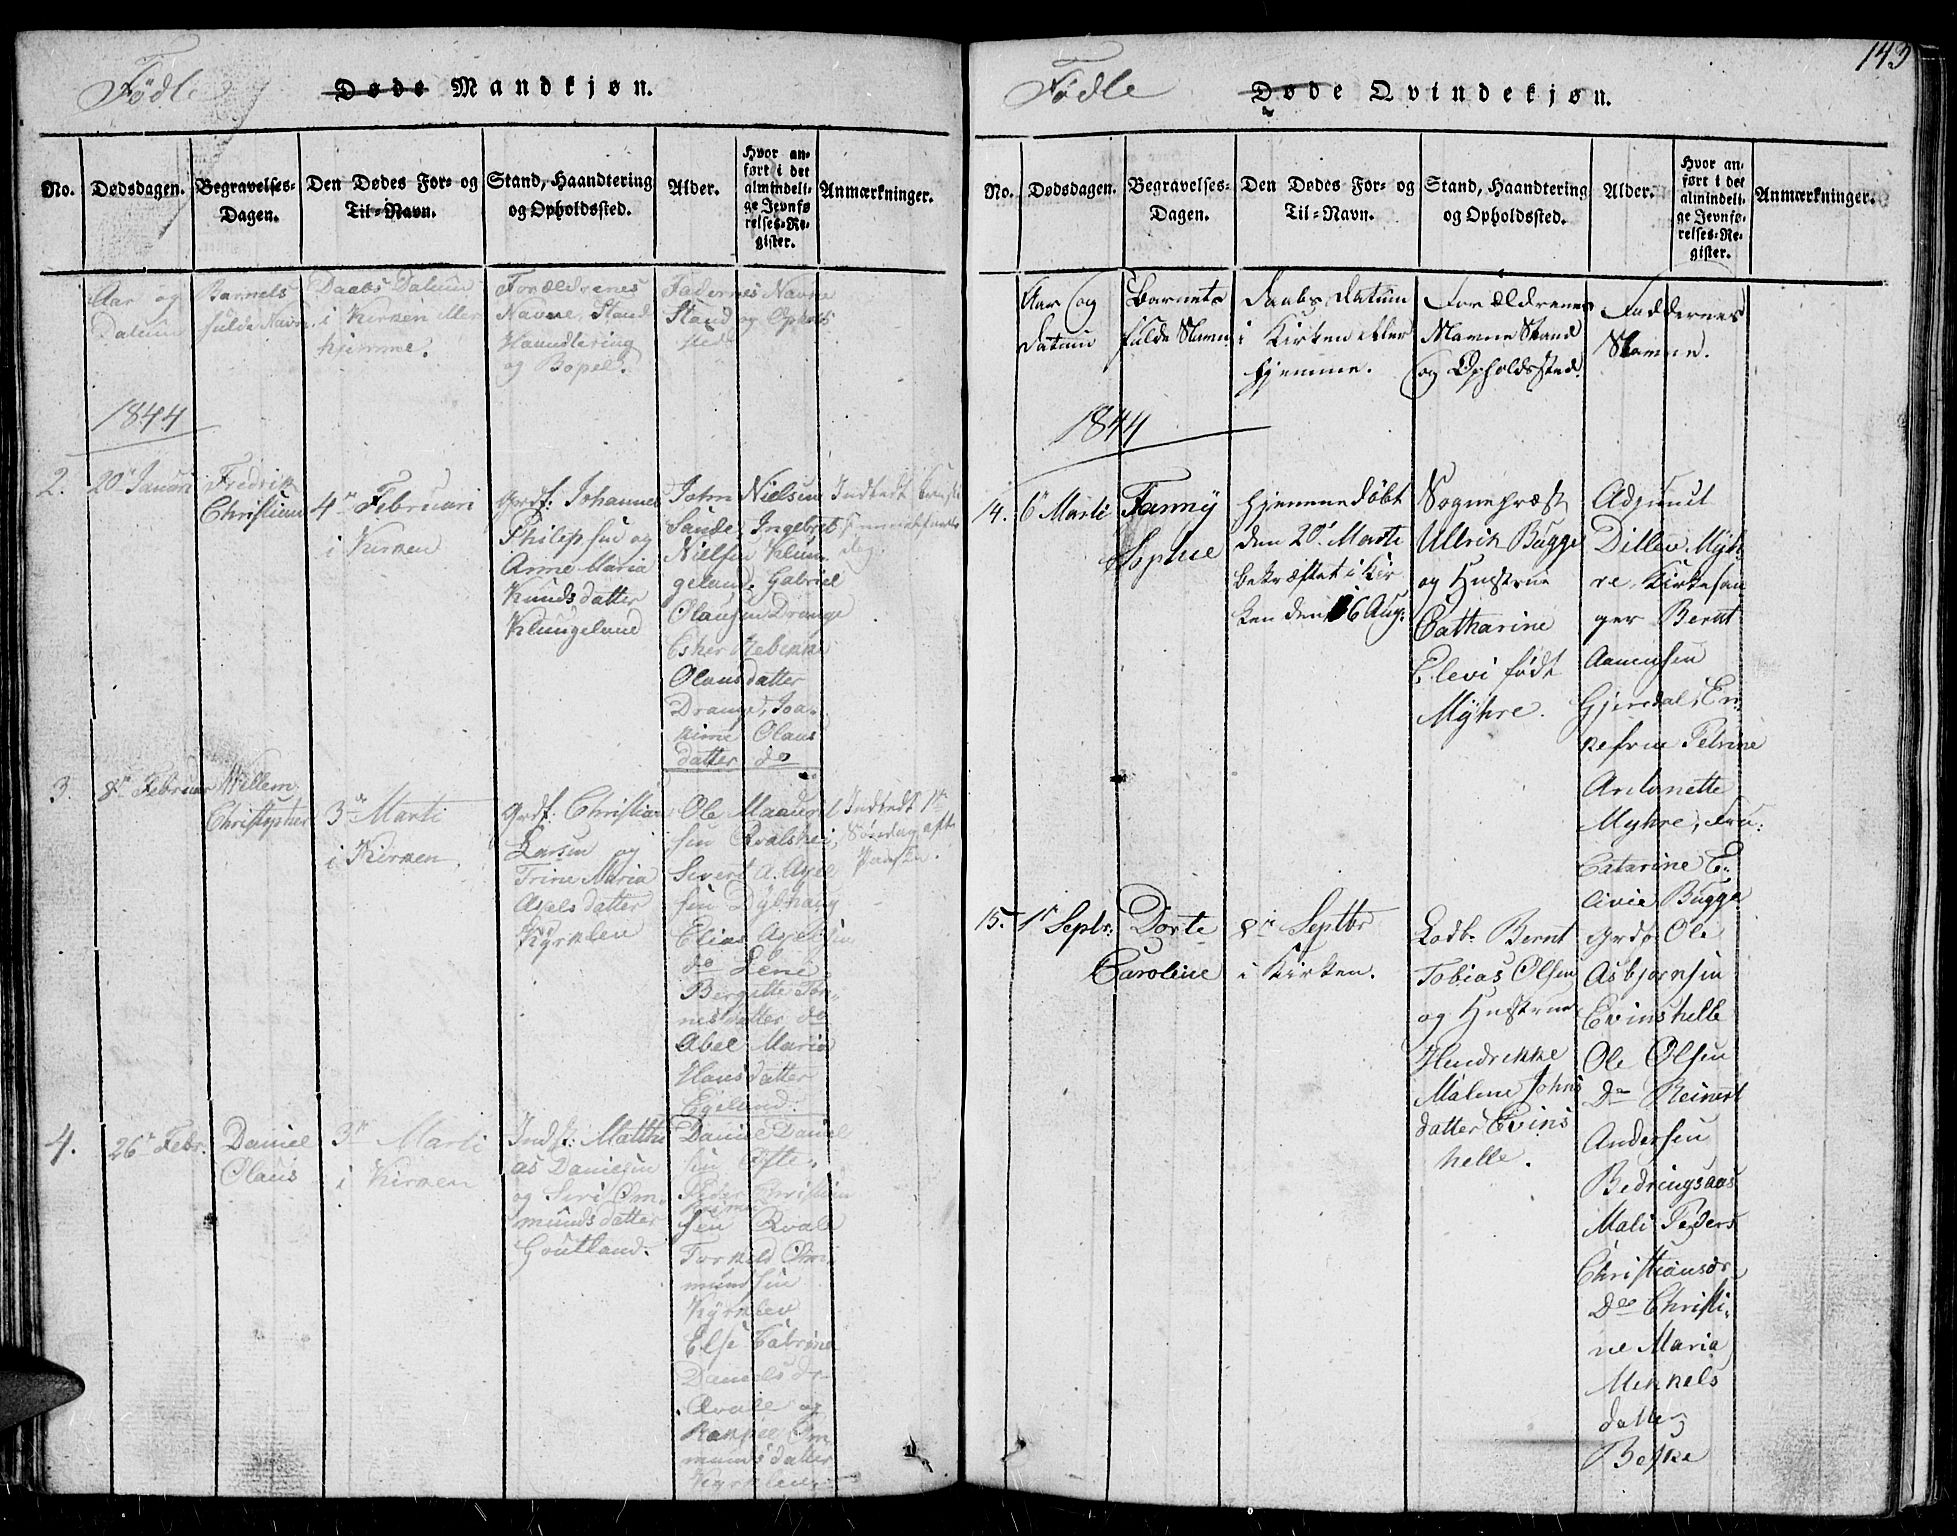 Fødte
Døde Mandkjøn.
No.
Dødsdagen.
Begravelses-
Dagen.
Den Dødes For- og
Til-Navn.
Stand, Haandtering
og Opholdssted.
Alder.
Hvor an-
ført i det
almindeli-
ge Jevnfø-
relses-Re-
gister.
Anmærkninger.
Aar og
Datum
Barnets
fulde Navn
Daabs Datum
i Kirken eller
hjemme.
Forældrenes
Navne, Stand
Haandtering
og Bopel.
Fadernes Navne
Stand og Opholds
sted
1844
2.
20de Januari
Fredrik
Christian
4de Februari
i Kirken
Grdf. Johannes
Philipsen og
Anne Maria
Knudsdatter
Klungeland
John Nielsen
Sande, Ingebret
Nielsen Klun
geland. Gabriel
Olausen Drange
Olausdatter
Drange, Joa-
kime Olaus
datter do
Indtedt
3.
8de Februar
Willem
Christopher
3de Marti
i Kirken.
Grdf. Christian
Larsen og
Trine Maria
Axelsdatter
Kyrklev
Ole
Sivert A. Axel
sen Dybhaug
Elias Axelsen
do Lene
Bergitte Tør-
nesdatter do
Abel Maria
Hansdatter
Egeland.
Indtedt 1ste
Søndag eft.
Paaske.
4.
26de Febr.
Daniel
Olaus
3de Marti
i Kirken
Indst: Matthi
as Danielsen
og Siri Om-
mundsdatter
Goutland.
Daniel Daniel
sen
Peder Christian
sen Qvale
Torkild Om-
mundsen
Kyrklev
Else
Danielsdr
Qvale og
Om
mundsdatter
Kyrklev
143
Fødte
Døde Qvindekjøn.
No.
Dødsdagen.
Begravelses-
Dagen.
Den Dødes For- og
Til-Navn.
Stand, Haandtering
og Opholdssted.
Alder.
Hvor an-
ført i det
almindeli-
ge Jevnfø-
relses-Re-
gister.
Anmærkninger.
Aar og
Datum
Barnets
fulde Navn
Daabs Datum
i Kirken eller
hjemme.
Forældrenes
Navne Stand
og Opholdssted.
Faddernes
Navne.
1844
14.
6te Marti
Fanny
Sophie
Hjemmedøbt
den 20de Marti
bekræftet i Kir
ken den 16 Aug.
Sognepræst
Ullrik Bugge
og Hustrue
Catharine
Elevi født
Myhre.
Adjunct
Ditlev Myh
re, Kirkesan
ger Bernt
Aanensen
Gjersdal, En-
kefrue Petrine
Antonette
Myhre, Fru:
Catarine E-
livie Bugge
15.
1ste Septbr:
Dorte
Caroline
8de Septbr
i Kirken.
Lodb. Bernt
Tobias Olsen
og Hustrue
Hendrikke
Malene Johns
datter Evins
helle.
Grdb: Ole
Asbjørnsen
Evinshelle
Ole Olsen
Do Reinert
Andersen
Bedringsaas
Mali Peders
Christiansdr
Do Christi-
ne Maria
Mikkels
datter